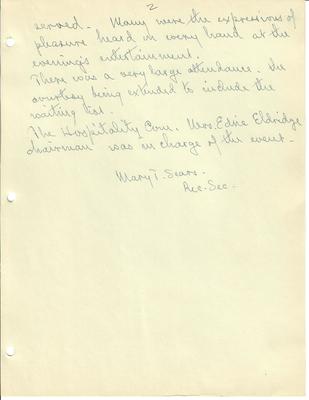 2
served. Many were the expressions of
pleasure heard on every hand at the
evening's entertainment.
There was a very large attendance. The
courtesy being extended to include the
waiting list.
The Hospitality Com. Mrs. Edne Eldridge
chairman was in charge of the event.
Mary T. Sears.
Rec. Sec.